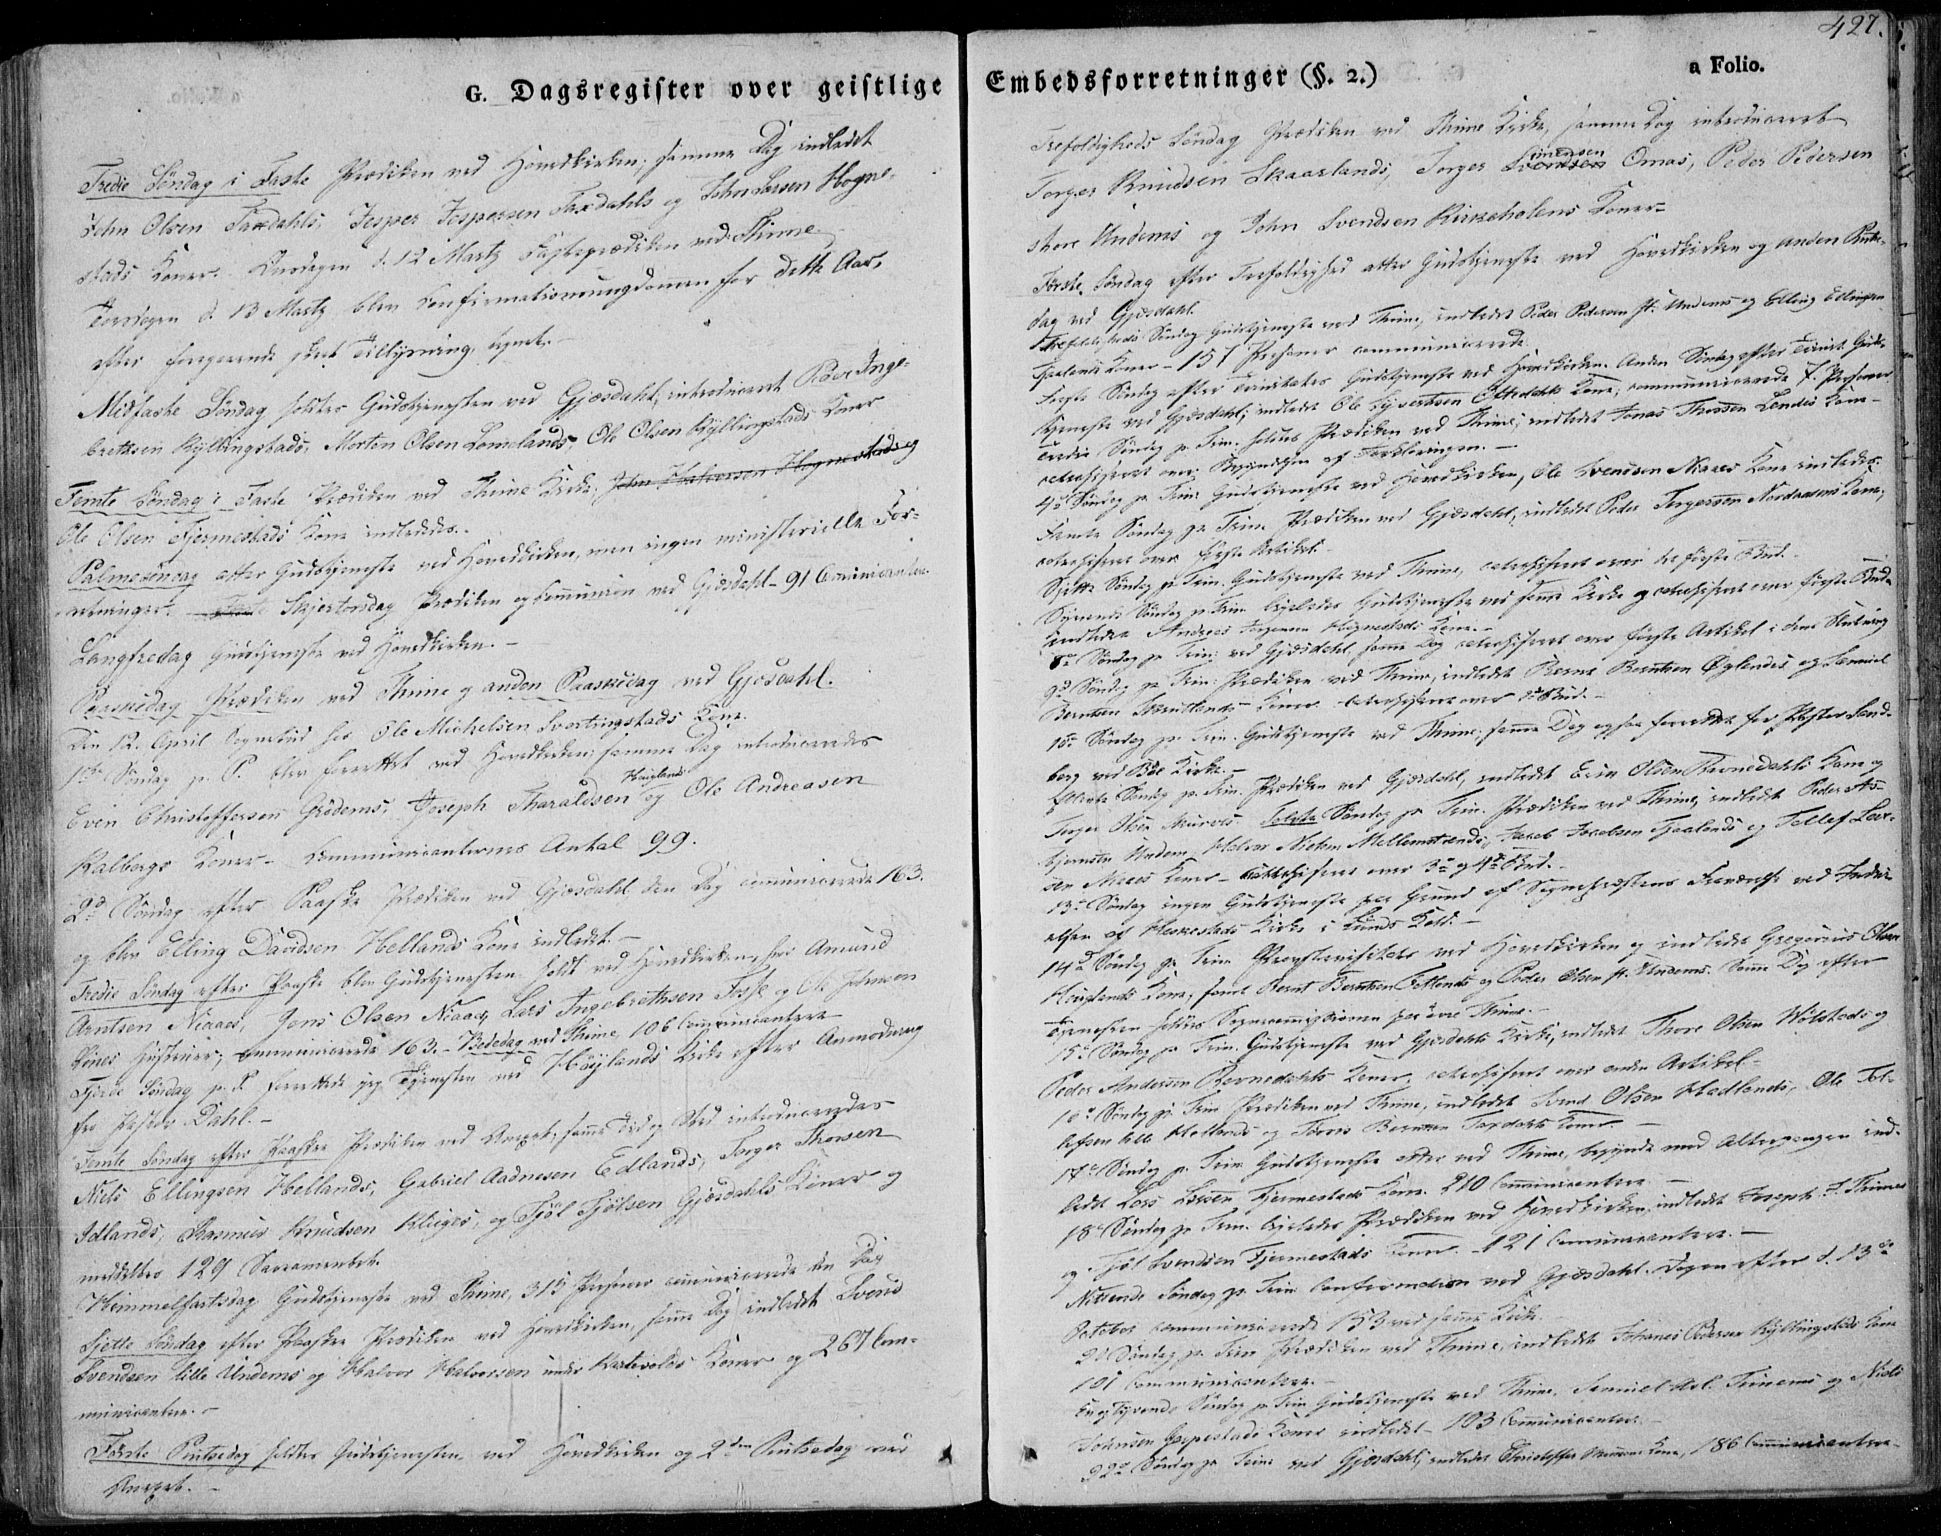 G. Dagsregister over geistlige
Tredie Søndag i Faste Prædiken ved Hovedkirken; samme Dag indledet
John Olsen Taxdahls, Jesper Jespersen Taxdahls og John Larsen Hogne-
stads Koner. Onsdagen d. 12 Martz Fasteprædiken ved Thime.
Torsdagen d. 13 Martz blev Confirmationsungdommen for dette Aar,
efter foregaaende skeet Tillysning,
Midfaste Søndag holdtes Gudstjenesten ved Gjæsdahl, introduceret Peder Inge-
brethsen Kyllingstads, Morten Olsen Lomelands, Ole Olsen Kyllingstads Koner
Femte Søndag i Faste Prædiken ved Thime Kirke, John Halvorsen Hognestads og
Ole Olsen Fjermestads Kone indlededes.
Palmesøndag atter Gudstjeneste ved Hovedkirken, men ingen ministerielle For-
retninger. Skjertorsdag Prædiken og Communion ved Gjæsdahl - 91 Communicanter
Langfredag Gudstjeneste ved Hovedkirken. -
Paaskedag Prædiken ved Thime og anden Paaskedag ved Gjæsdahl.
Den 12. April Sognebud hos Ole Michelsen Svertingstads Kone.
1ste Søndag p. P. blev forrettet ved Hovedkirken; samme Dag introduceredes
Even Christoffersen Grødems, Joseph Tharaldsen Haugland og Ole Andreasen
Kalbergs Koner - Communicanternes Antal 99.
2d Søndag efter Paaske Prædiken ved Gjæsdahl den Dag communicerede 163.
og blev Elling Davidsen Hellands Kone indledet. -
Tredie Søndag efter Paaske blev Gudstjenesten holdt ved Hovedkirken, hvor Amund
Arntsen Niaaes, Jens Olsen Niaaes, Lars Ingebrethsen Fosse og Ole Johnsen
Lines Hustruer; communicerede 163. - Bededag ved Thime 106 Communicantere
Fjerde Søndag p. P. forrettede jeg Tjenesten ved Høylands Kirke efter Anmodning
fra Pastor Dahl. -
Femte Søndag efter Paaske Prædiken ved Annexet, samme Tid og Sted introduceredes
Niels Ellingsen Hellands, Gabriel Aadnesen Edlands, Torger Thorsen
Idlands, Rasmus Knudsen Kluges, og Tjøl Tjølsen Gjæsdahls Koner og
meddeltes 129 Sacramentet.
Himmelfartsdag Gudstjeneste ved Thime, 315 Personer communicerede den Dag
Sjette Søndag efter Paaske Prædiken ved Hovedkirken, samme Dag indledet Svend
Svendsen lille Undems og Halvor Halvorsen under Kartevolds Koner og 267 Com-
municanter. -
Første Pintsedag holdtes Gudstjenesten ved Hovedkirken og 2den Pintsedag ved
Annexet. -
427.
Embedsforretninger (§. 2.)
a Folio.
Trefoldigheds Søndag Prædiken ved Thime Kirke, samme Dag introduceret
Torger Knudsen Skaarlands, Torger Svendsen Omas, Peder Pedersen
store Undems og John Svendsen Kirkeholens Koner -
Første Søndag efter Trefoldighed atter Gudstjeneste ved Hovedkirken og anden Pintse-
dag ved Gjæsdahl.
Trefoldigheds Søndag Gudstjeneste ved Thime, indledet Peder Pedersen st. Undems og Elling Ellingsen
Tjaalands Koner - 151 Personer communicerede
Første Søndag efter Trinitatis Gudstjeneste ved Hovedkirken. Anden Søndag efter Trinit. Guds-
tjeneste ved Gjæsdahl, indledet Ole Sjvertsen Oltedahls Kone, communicerede 7. Personer
Tredie Søndag p. Trin. holdtes Prædiken ved Thime, indledet Jonas Thorsen Lendes Kone -
catechiseret over Begyndelsen af Forklaringen. -
4de Søndag p. Trin. Gudstjeneste ved Hovedkirken, Ole Svendsen Niaaes Kone indledet.
Femte Søndag p. Trin. Prædiken ved Gjæsdahl, indledet Peder Torgersen Nordaasens Kone,
catechiseret over første Artikel.
Sjette Søndag p. Trin. Gudstjeneste ved Thime, catechiseret over det første Bud.
Syvende Søndag p. Trin. ligeledes Gudstjeneste ved samme Kirke og catechiseret over første Bud
indledet Andreas Torgersen Hognestads Kone. -
8de Søndag p. Trin. ved Gjæsdahl, samme Dag catechiseret over første Artikel i dens Slutning
9d Søndag p. Trin. Prædiken ved Thime, indledet Bernt Berntsen Øglends og Samuel
Berntsen Skrutlands Koner - catechiseret over 2d Bud. -
10de Søndag p. Trin. Gudstjeneste ved Thime, samme Dag ogsaa forrettet for Pastor Sand-
berg ved Bøe Kirke. -
Ellevte Søndag p. Trin. Prædiken ved Gjæsdahl, indledet Erik Olsen Ravnedahls Kone og
Torger Olsen Skurves. Tolvte Søndag p. Trin. Prædiken ved Thime, indledet Peder As-
bjørnsen Undem, Halvor Nielsen Mellemstrands, Jacob Jacobsen Tjaalands og Tollef Lar-
sen Niaaes Koner - catechiseret over 3de og 4de Bud. -
13de Søndag ingen Gudstjeneste paa Grund af Sognepræstens Fraværelse ved Indvi-
elsen af Heskestads Kirke i Lunds Kald. -
14d Søndag p. Trin. Provstevisitats ved Hovedkirken og indledet Gregorius Olsen
Houglands Kone, samt Bernt Berntsen Fotlands og Peder Olsen st. Undems. Samme Dag efter
Tjenesten holdtes Sognecommissionen paa øvre Thime. -
15d Søndag p. Trin. Gudstjeneste ved Gjæsdahls Kirke, indledet Thore Olsen Wølstads og
Peder Andersen Ravnedahls Koner, catechiseret over anden Artikel -
16de Søndag p. Trin. Prædiken ved Thime, indledet Svend Olsen Hadlands, Ole Tol-
lefsen lille Hetlands og Tørres Berntsen Taxdahls Koner. -
17d Søndag p. Trin. Gudstjeneste atter ved Thime, begyndte med Altergangen ind-
ledet Lars Larsen Fjermestads Kone. 210 Communicantere. -
18d Søndag p. Trin. ligeledes Prædiken ved Hovedkirken, indledet Joseph J. Thimes
og Tjøl Svendsen Fjermestads Koner. - 121 Communicantere. -
Nittende Søndag p. Trin. Confirmation ved Gjæsdahl. Dagen efter d. 13de
October communicerede 153 ved samme Kirke. -
20 Søndag p. Trin. Prædiken ved Thime, indledet Johanes Pedersen Kyllingstads Kone
101 Communicantere. -
En og Tyvende Søndag p. Trin Gudstjeneste ved Thime. Samuel Asl. Tunems og Niels
Johnsen Garpestads Koner indledet - 103 Communicanter. -
22d Søndag p. Trin. ved Gjæsdahl, indledet Christopher Kone, 186 Communicantere.